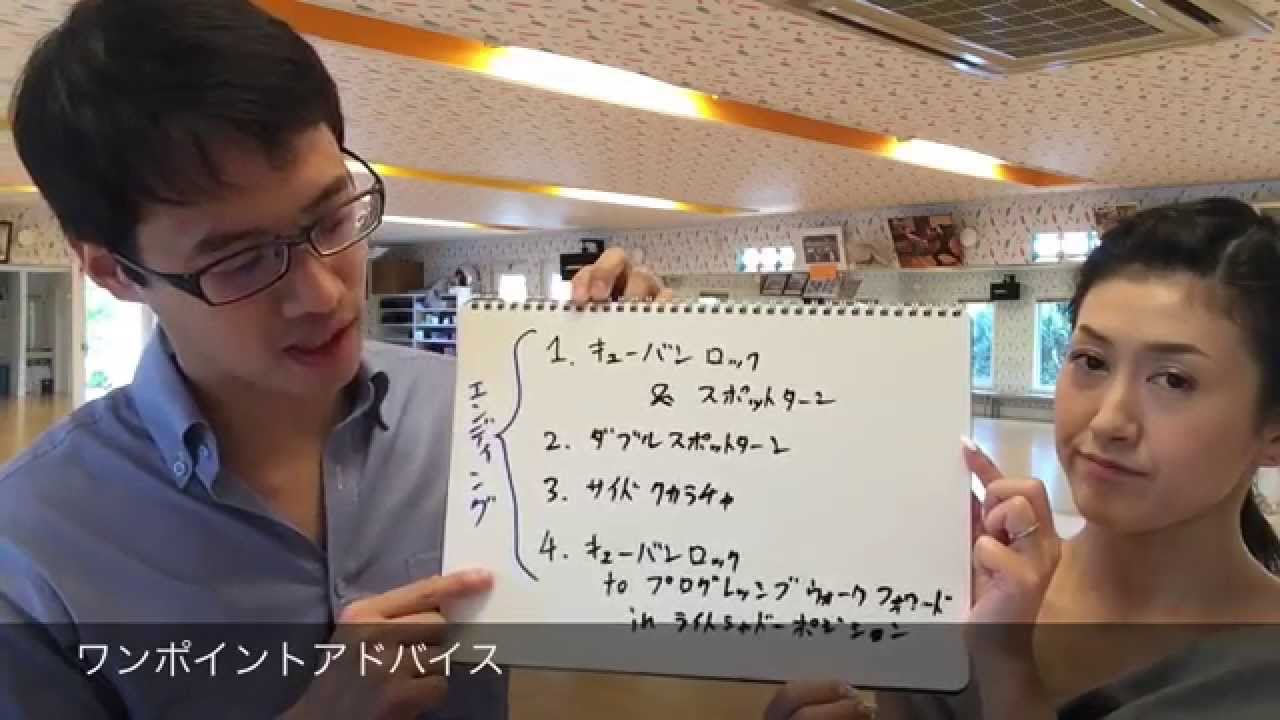 エンディング
1. キューバン ロック
& スポットターン
2. ダブル スポットターン
3. サイド クカラチャ
4. キューバン ロック
to プログレッシブ ウォーク フォワード
in ライトシャドーポジション
ワンポイントアドバイス